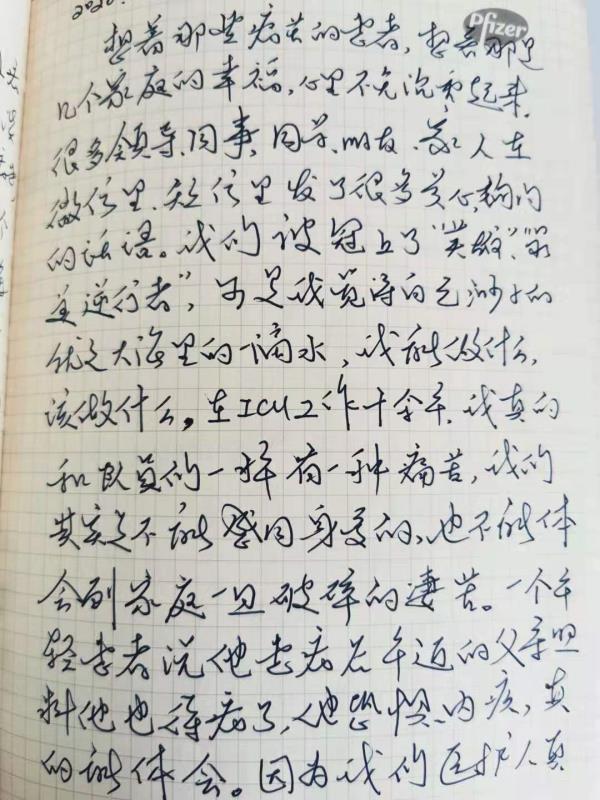 2020.
Pfizer
想着那些病苦的患者,想着那是
几个家庭的幸福,心里不免沉重起来.
很多领导、同事、同学、朋友、家人在
微信里、短信里发了很多关心、慰问
的话语。我们被冠上了“英雄”、“最
美逆行者”,可是我觉得自己渺小的
就是大海里的一滴水,我能做什么,
该做什么。在ICU工作十余年,我真的
和队员们一样有一种痛苦,我们
其实是不能感同身受的,也不能体
会到家庭一旦破碎的凄苦。一个年
轻患者说他患病后年迈的父亲照
料他也得病了,他恐惧、内疚,真
的能体会。因为我们医护人员